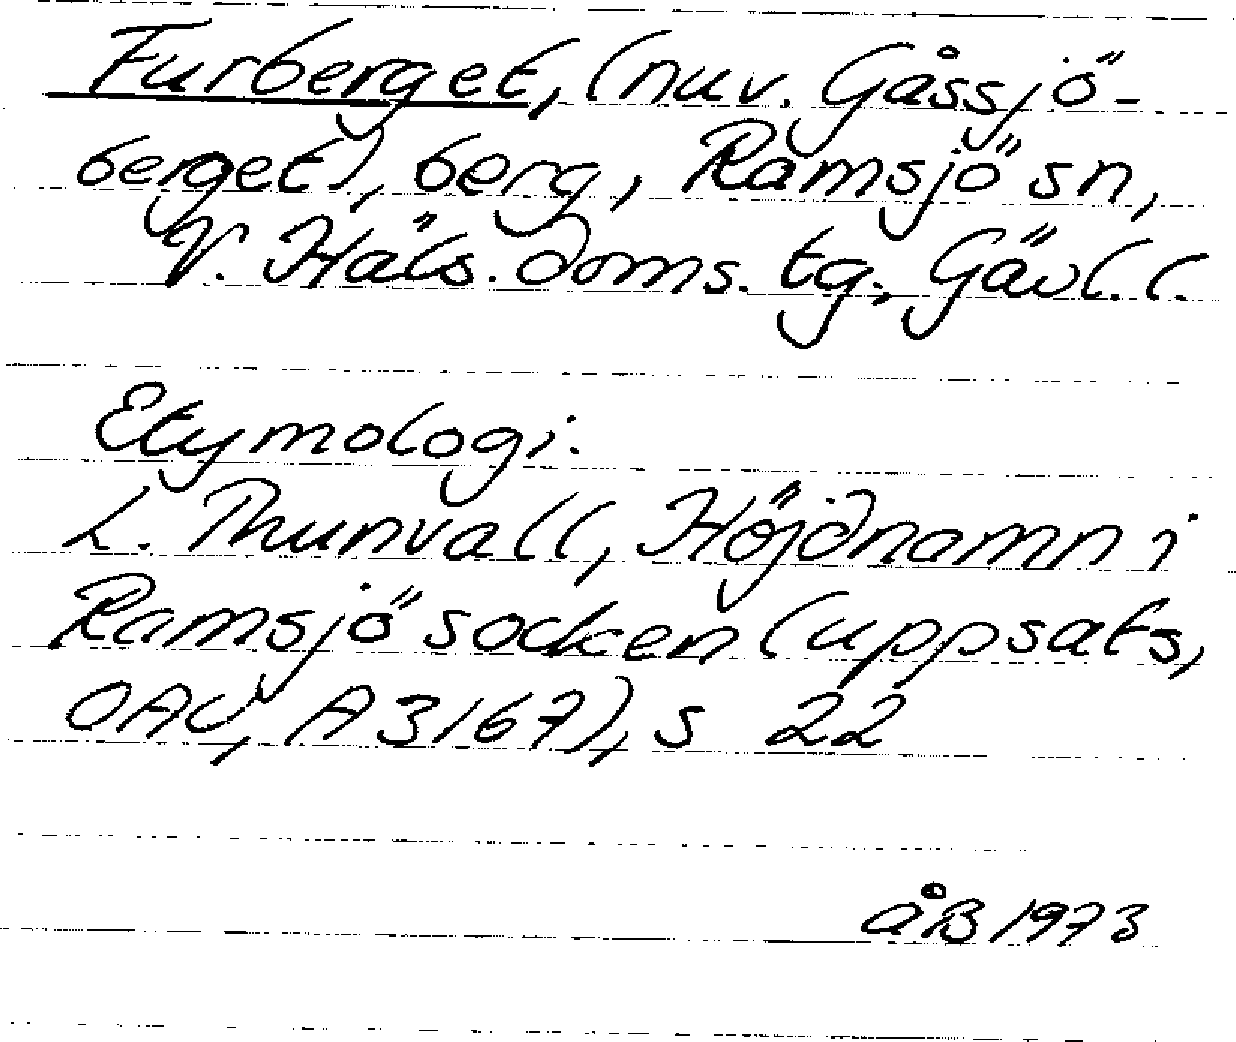 Furberget, (nuv. Gåssjö-
berget), berg, Ramsjö sn,
V. Häls. doms. tg., Gävl. l.
Etymologi.
L. Thunvall, Höjdnamn i
Ramsjö socken (uppsats,
OAU, A 3167), s 22
ÅB 1973